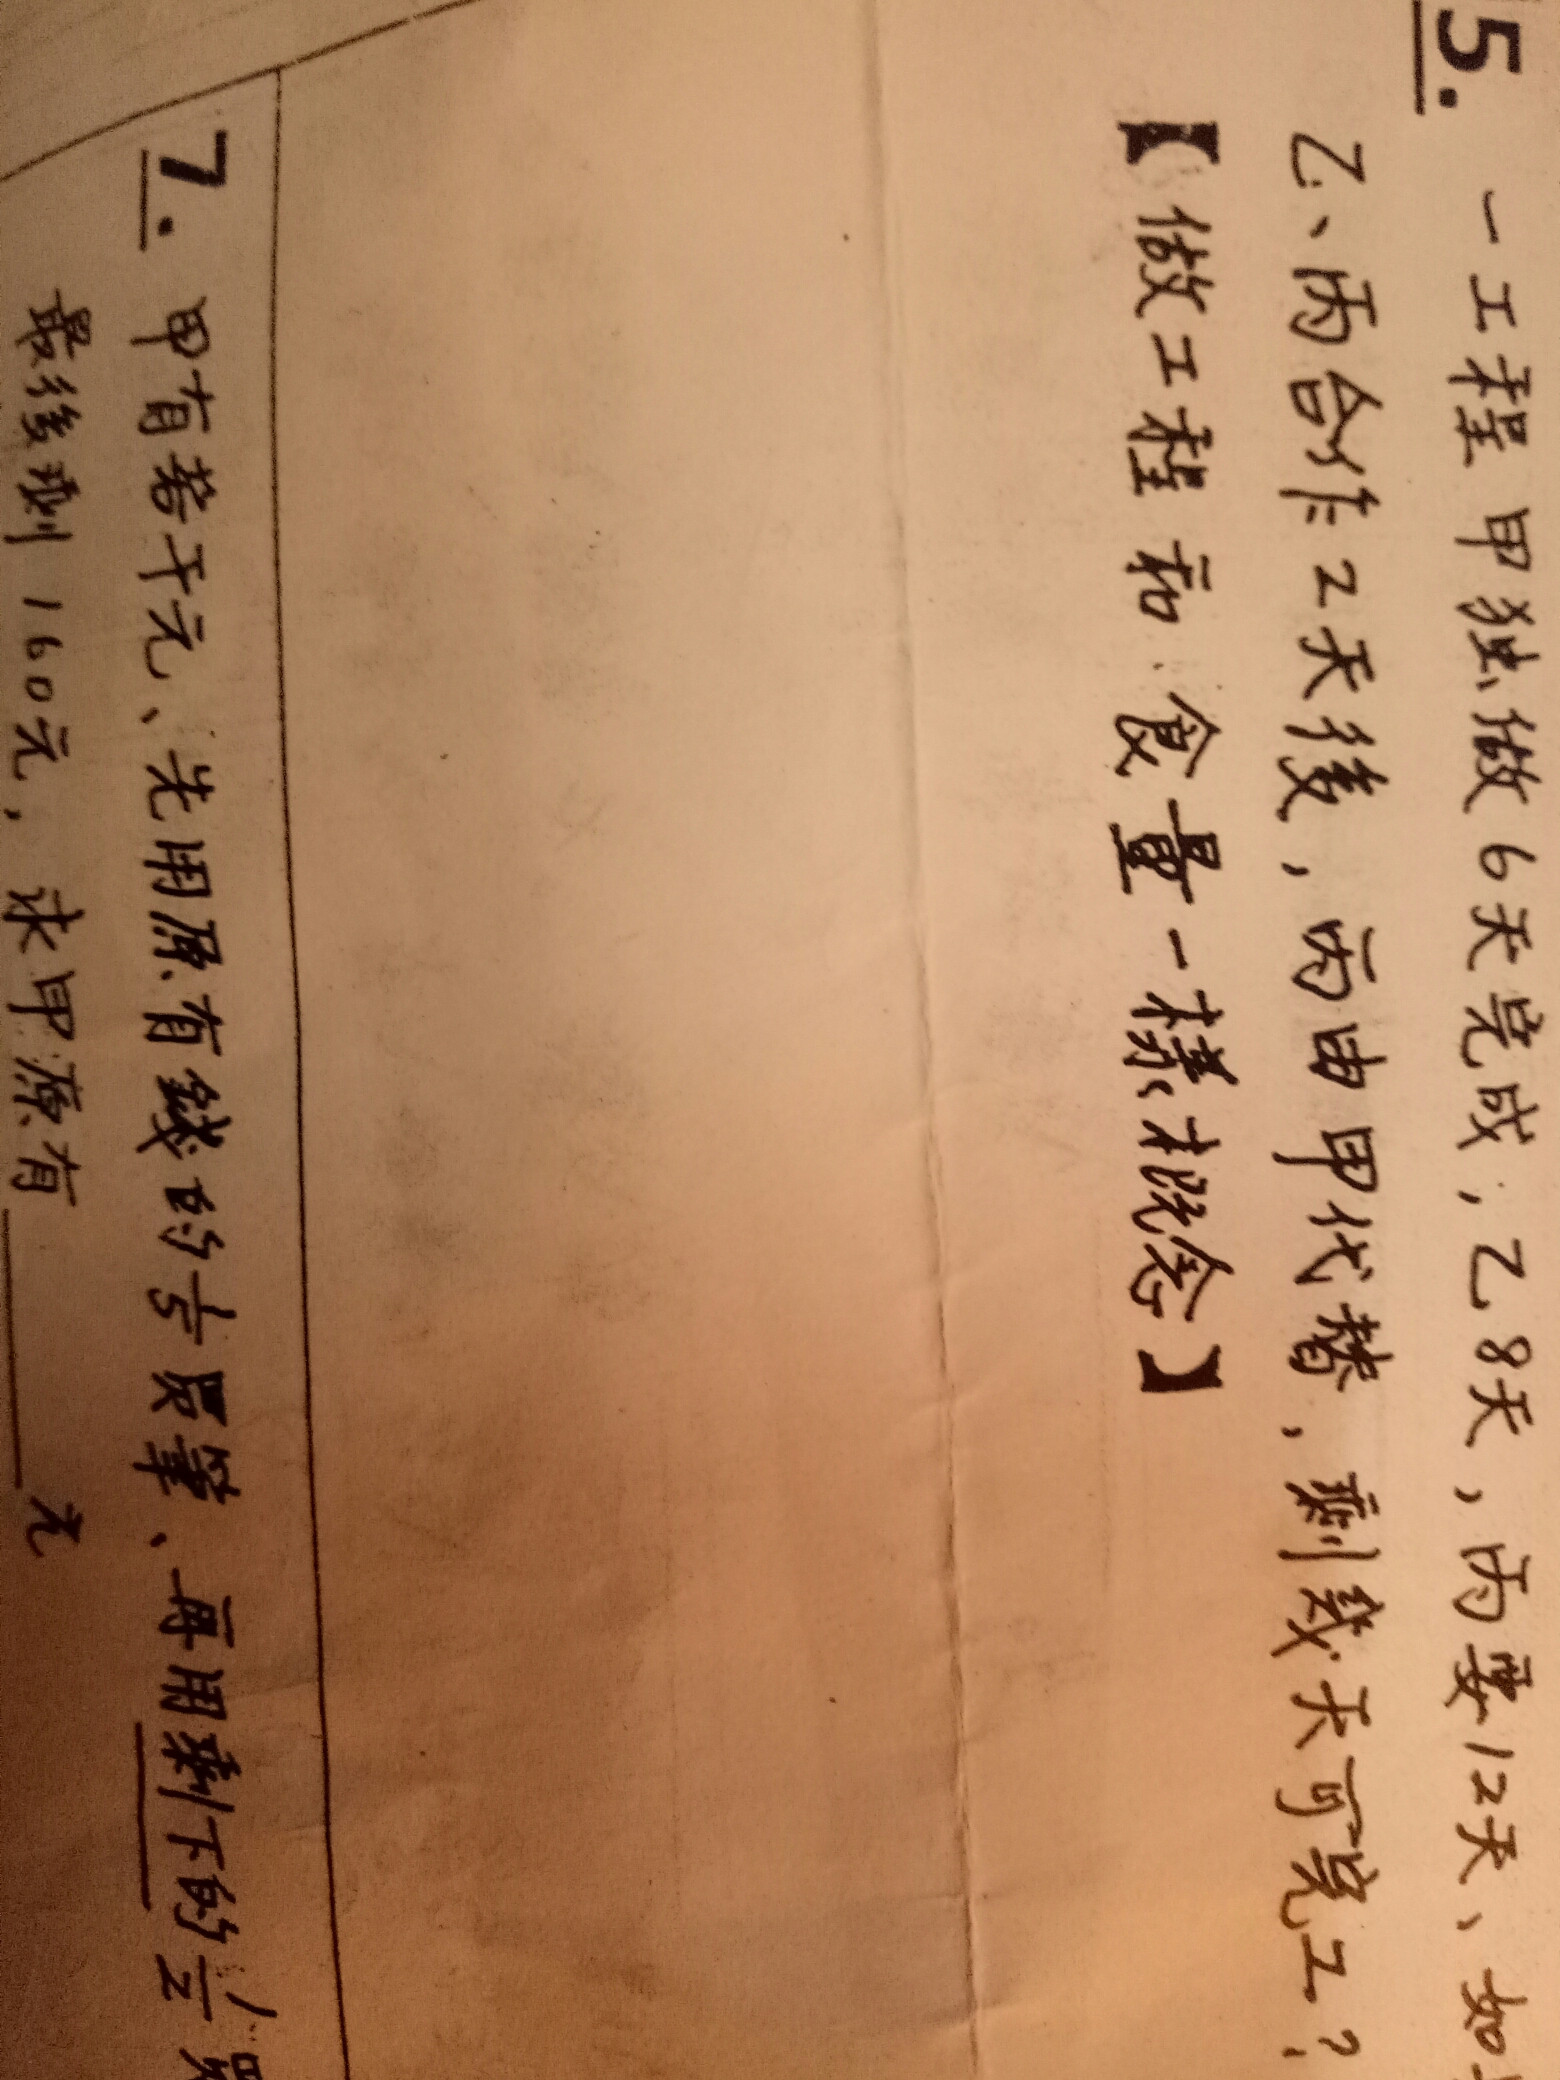 5. 一工程甲独做6天完成，乙8天，丙要12天、如
乙、丙合作2天後，丙由甲代替，剩幾天可完工？
【做工程和食量一樣概念】
7. 甲有若干元、先用原有錢的1/5買筆、再用剩下的1/2買
最後剩160元，求甲原有____元